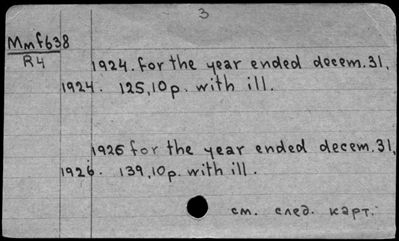 3
Mmf638
R4
1924. for the year ended decem. 31,
1924. 125,10p. with ill.
1926 for the year ended decem. 31,
1926. 139,10p. with ill.
см. след. карт.